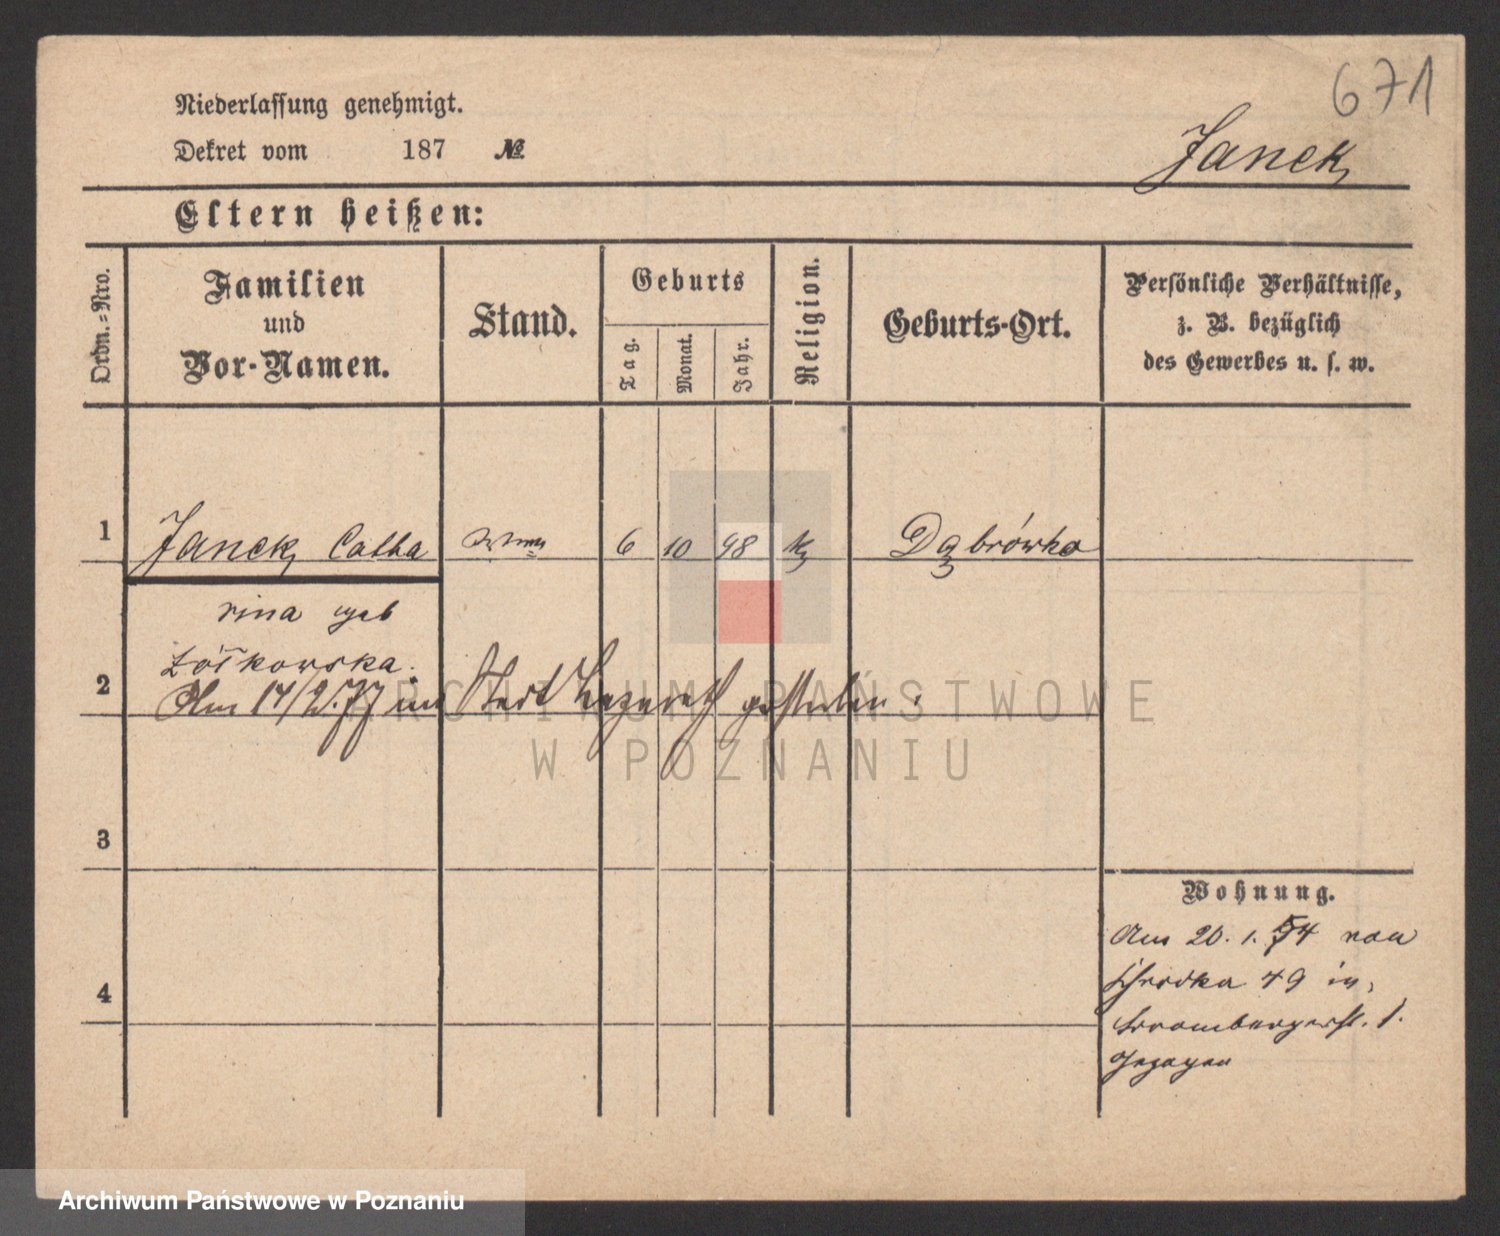 671
Niederlassung genehmigt.
Dekret vom 187 №
Janek
Eltern heißen:
Ordn.-Nro.
Familien
und
Vor-Namen.
Stand.
Geburts
Tag.
Monat.
Jahr.
Religion.
Geburts-Ort.
Persönliche Verhältnisse,
z. B. bezüglich
des Gewerbes u. s. w.
1 Janek Catha 6 10 98 k Dąbrówka
rina geb
2
Am 17/2.77 im Stadt Lazareth gestorben.
3
Wohnung.
Am 20. 1. 74 von
Schrodka 49 in
4
Brombergerst. 1.
gezogen
ARCHIWUM PAŃSTWOWE
W POZNANIU
Archiwum Państwowe w Poznaniu